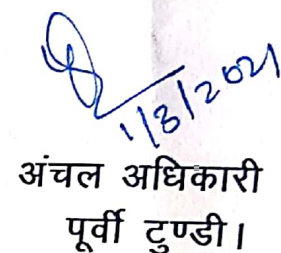 1/8/2021
अंचल अधिकारी
पूर्वी टुण्डी।